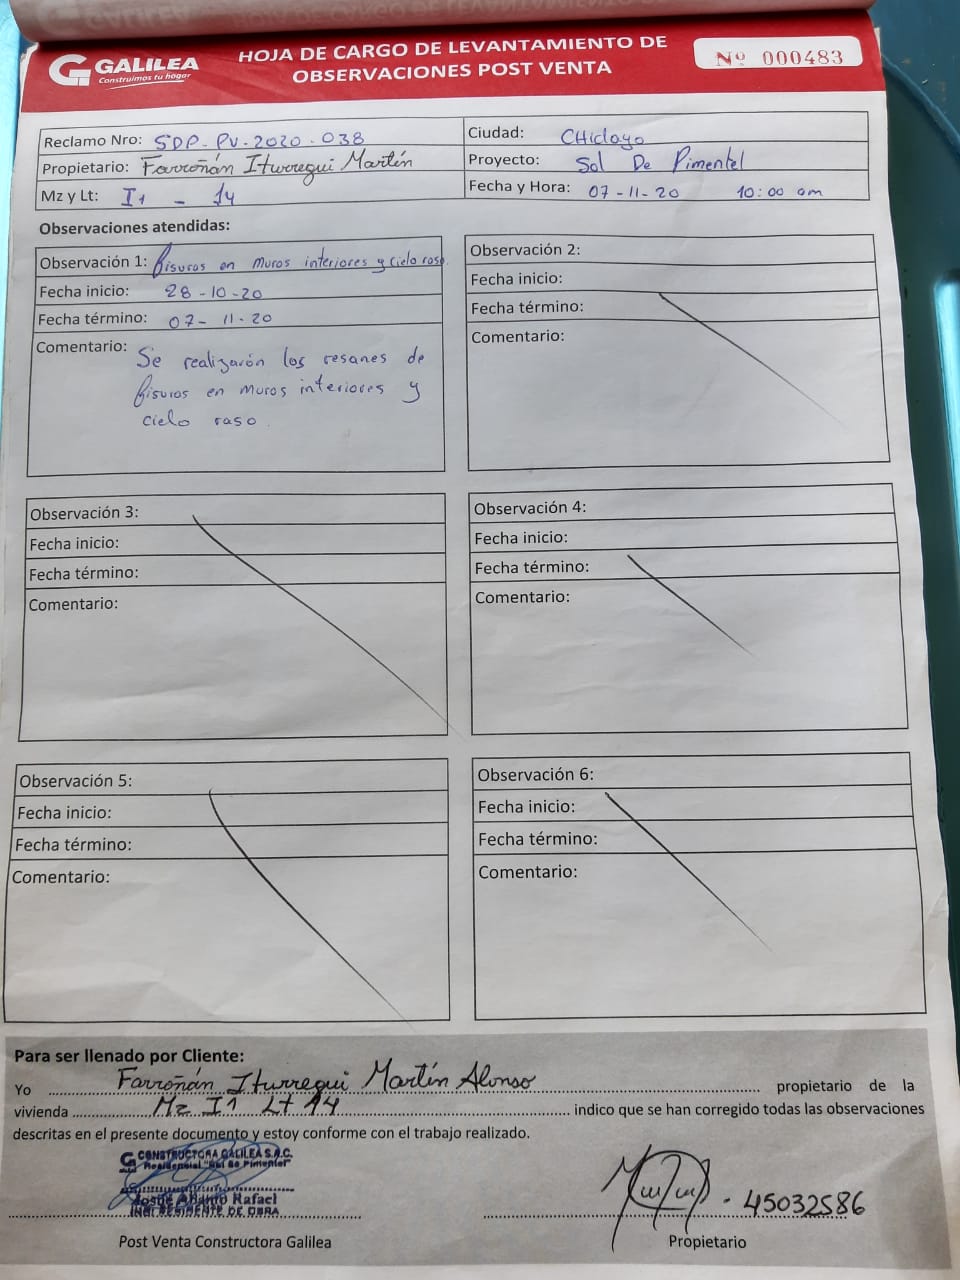 GALILEA
Construimos tu hogar
HOJA DE CARGO DE LEVANTAMIENTO DE
OBSERVACIONES POST VENTA
Nº 000483
Reclamo Nro: SDP-PV-2020-038
Ciudad: CHiclayo
Propietario: Farroñán Iturregui Martín
Proyecto: Sol De Pimentel
Mz y Lt: I1 - 14
Fecha y Hora: 07-11-20 10:00 am
Observaciones atendidas:
Observación 1: fisuras en muros interiores y cielo raso.
Fecha inicio: 28-10-20
Fecha término: 07-11-20
Comentario: Se realizarón los resanes de
fisuras en muros interiores y
cielo raso.
Observación 2:
Fecha inicio:
Fecha término:
Comentario:
Observación 3:
Fecha inicio:
Fecha término:
Comentario:
Observación 4:
Fecha inicio:
Fecha término:
Comentario:
Observación 5:
Fecha inicio:
Fecha término:
Comentario:
Observación 6:
Fecha inicio:
Fecha término:
Comentario:
Para ser llenado por Cliente:
Yo Farroñán Iturregui Martín Alonso propietario de la
vivienda Mz I1 Lt 14 indico que se han corregido todas las observaciones
descritas en el presente documento y estoy conforme con el trabajo realizado.
CONSTRUCTORA GALILEA S.A.C.
Residencial "Sol de Pimentel"
Josué Abanto Rafael
ING. RESIDENTE DE OBRA
Post Venta Constructora Galilea
- 45032586
Propietario